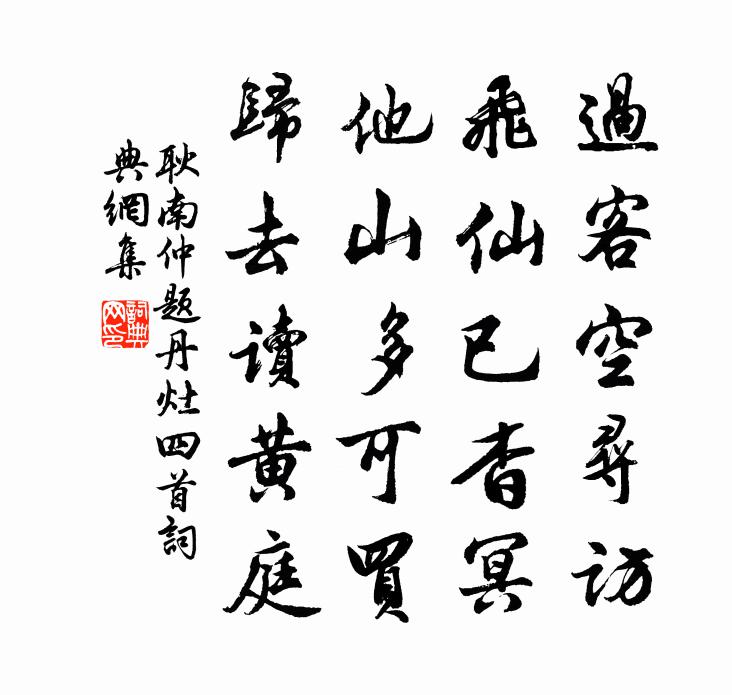 過客空尋訪
飛仙已杳冥
他山多可買
歸去讀黃庭
耿南仲題丹灶四首詞
典網集
詞典
网印